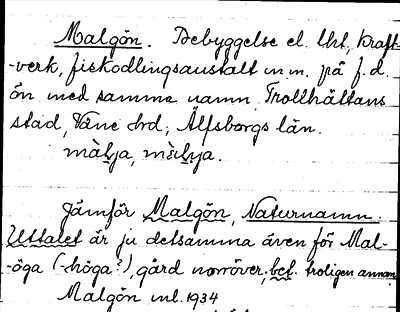 Malgön. Bebyggelse el. lht, Kraft-
-verk, fiskodlingsanstalt m.m. på f.d.
ön med samma namn, Trollhättans
stad, Väne hrd, Älfsborgs län.
Jämför Malgön, Naturnamn.
Uttalet är ju detsamma även för Mal-
-öga (-höga?), gård norröver, bet. troligen annan
Malgön ml. 1934